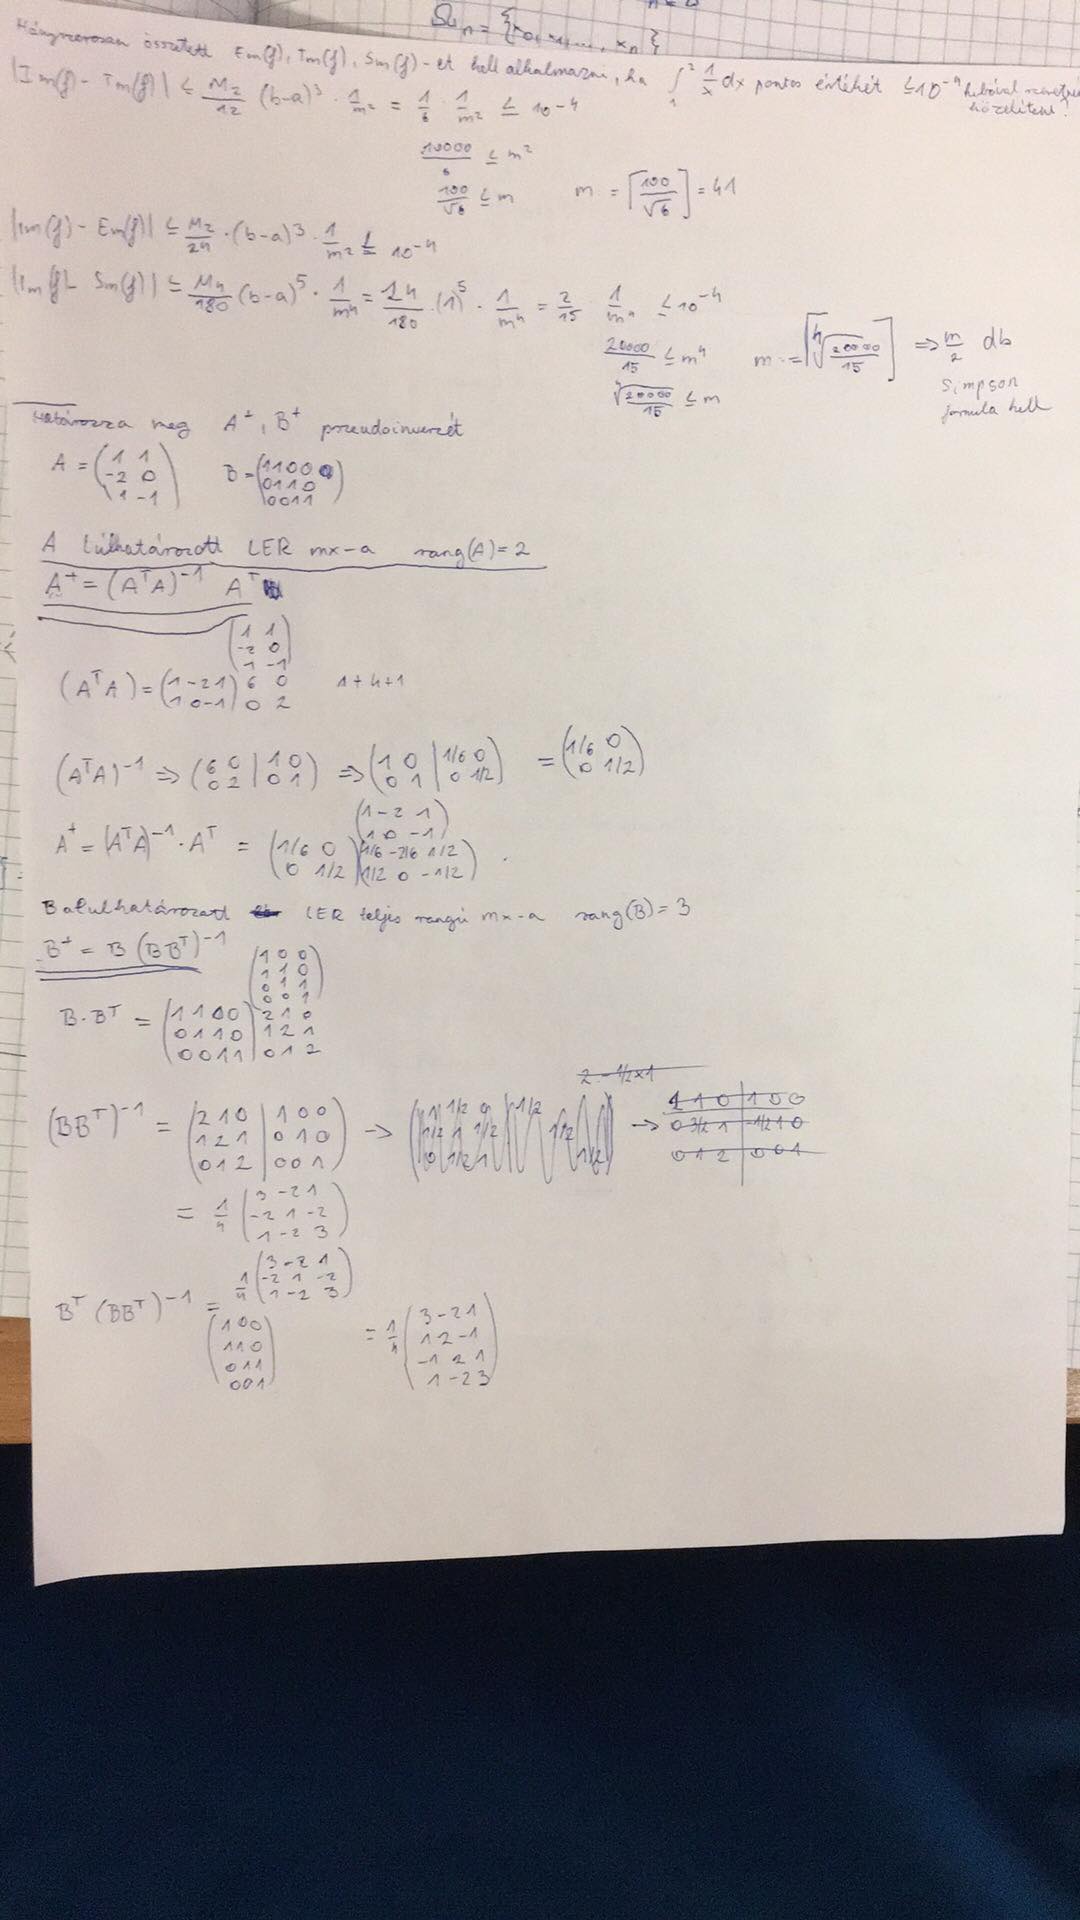 Ωn = {x0, x1, ..., xn}
Hányszorosan összetett Em(f), Tm(f), Sm(f)-et kell alkalmazni, ha ∫₁² 1/x dx pontos értékét ≤10^-4 hibával szeretnénk közelíteni?
|Im(f) - Tm(f)| ≤ M2/12 (b-a)^3 · 1/m^2 = 1/6 · 1/m^2 ≤ 10^-4
10000/6 ≤ m^2
100/√6 ≤ m    m := ⌈100/√6⌉ = 41
|Im(f) - Em(f)| ≤ M2/24 · (b-a)^3 · 1/m^2 ≤ 10^-4
|Im(f) - Sm(f)| ≤ M4/180 (b-a)^5 · 1/m^4 = 24/180 · (1)^5 · 1/m^4 = 2/15 · 1/m^4 ≤ 10^-4
20000/15 ≤ m^4    m := ⌈⁴√(20000/15)⌉ => m/2 db
⁴√(20000/15) ≤ m    Simpson
formula kell
Határozza meg A^+, B^+ pszeudoinverzét
A = (1 1; -2 0; 1 -1)    B = (1 1 0 0; 0 1 1 0; 0 0 1 1)
A túlhatározott LER mx-a    rang(A) = 2
A^+ = (A^T A)^-1 A^T
(1 1; -2 0; 1 -1)
(A^T A) = (1 -2 1; 1 0 -1) 6 0; 0 2    1+4+1
(A^T A)^-1 => (6 0 | 1 0; 0 2 | 0 1) => (1 0 | 1/6 0; 0 1 | 0 1/2) = (1/6 0; 0 1/2)
(1 -2 1; 1 0 -1)
A^+ = (A^T A)^-1 · A^T = (1/6 0; 0 1/2) (1/6 -2/6 1/2; 1/2 0 -1/2)
B alulhatározott LER teljes rangú mx-a    rang(B) = 3
B^+ = B (BB^T)^-1
(1 0 0; 1 1 0; 0 1 1; 0 0 1)
B·B^T = (1 1 0 0; 0 1 1 0; 0 0 1 1) 2 1 0; 1 2 1; 0 1 2
2. - 1/2 × 1
(BB^T)^-1 = (2 1 0 | 1 0 0; 1 2 1 | 0 1 0; 0 1 2 | 0 0 1) -> -> 1 1 0 | 1 0 0; 0 3/2 1 | -1/2 1 0; 0 1 2 | 0 0 1
= 1/4 (3 -2 1; -2 1 -2; 1 -2 3)
1/4 (3 -2 1; -2 1 -2; 1 -2 3)
B^T (BB^T)^-1 = (1 0 0; 1 1 0; 0 1 1; 0 0 1) = 1/4 (3 -2 1; 1 2 -1; -1 2 1; 1 -2 3)